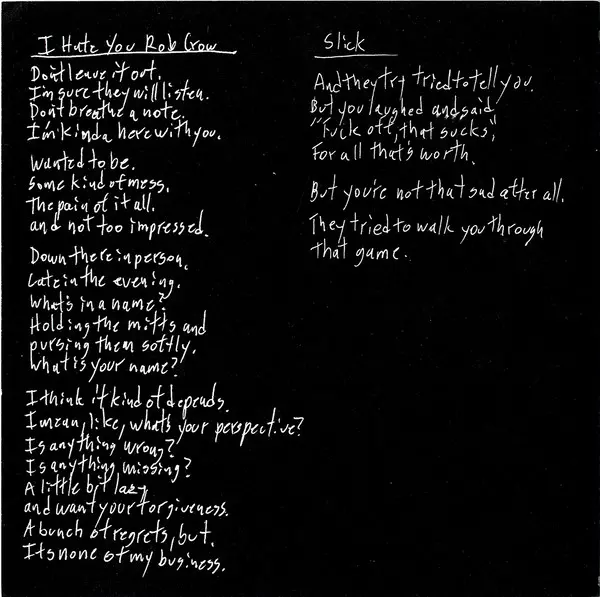 I Hate You Rob Crow
Don't leave it out.
I'm sure they will listen.
Don't breathe a note.
I'm kinda here with you.
Wanted to be.
Some kind of mess.
The pain of it all.
and not too impressed.
Down there in person.
Late in the evening.
What's in a name?
Holding the mitts and
pursing them softly.
What is your name?
I think it kind of depends.
I mean, like, what's your perspective?
Is anything wrong?
Is anything missing?
A little bit lazy
and want your forgiveness.
A bunch of regrets, but.
Its none of my business.
Slick
And they try tried to tell you.
But you laughed and said
"Fuck off, that sucks,"
For all that's worth.
But you're not that sad after all.
They tried to walk you through
that game.